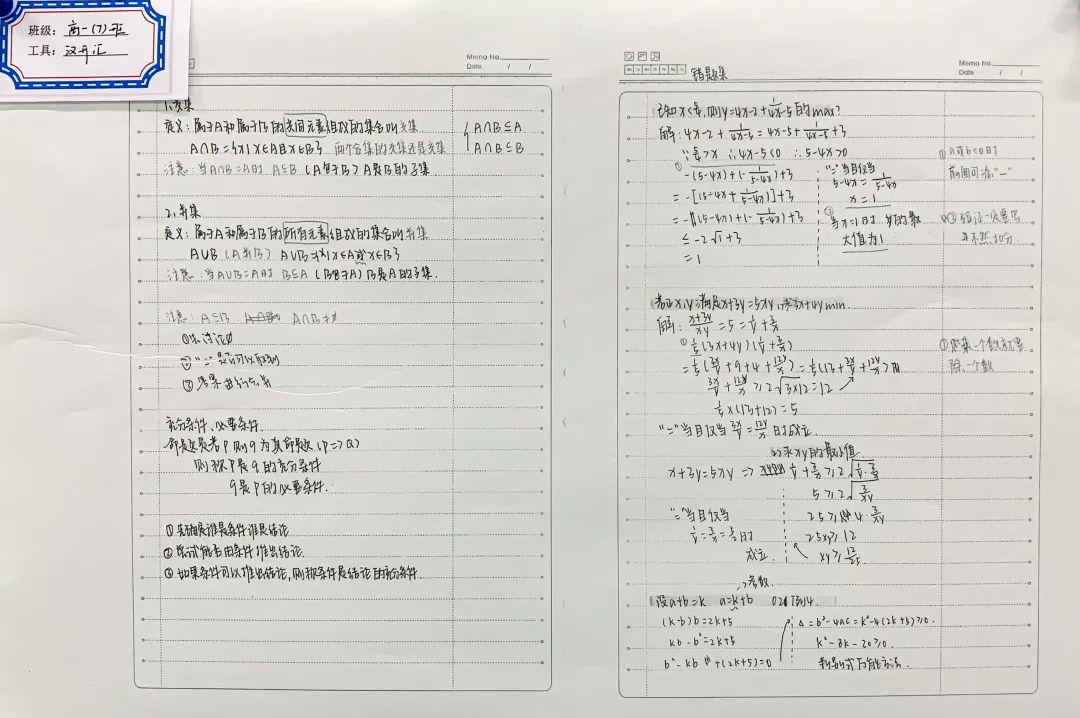 班级：高一(7)班
工具：汉开汇
Memo No.
Date / /
1.交集
定义：属于A和属于B的共同元素组成的集合叫交集
A∩B={x|x∈A且x∈B} 两个合集的交集还是交集
{A∩B⊆A
A∩B⊆B
注意：当A∩B=A时 A⊆B (A包于B) A是B的子集
2.并集
定义：属于A和属于B的所有元素组成的集合叫并集
A∪B (A并B) A∪B={x|x∈A或x∈B}
注意：当A∪B=A时 B⊆A (B包于A) B是A的子集.
注意：A⊆B A∩B≠∅
①
②"="是否可以取到
③
充分条件、必要条件
命题是若P则q为真命题(P=>Q)
则称P是q的充分条件
q是P的必要条件.
①先确定谁是条件谁是结论
②尝试能否由条件推出结论
③如果条件可以推出结论,则称条件是结论的充分条件
Memo No.
Date / /
错题集
已知x<5/4,则y=4x-2+1/(4x-5)的max?
解：4x-2+1/(4x-5)=4x-5+1/(4x-5)+3
∵5/4>x ∴4x-5<0 ∴5-4x>0
①-(5-4x)+(-1/(5-4x))+3
=-[(5-4x)+1/(5-4x)]+3
=-[(5-4x)+(-1/(5-4x))+3
≤-2√1+3
=1
"="当且仅当
5-4x=1/(5-4x)
x=1
②当x=1时 y的最
大值为1
①A或b<0时
前面可添"-"
②验证一定要写
再不然,扣分
若正x,y满足x+3y=5xy,求3x+4y min.
解：(x+3y)/xy=5=1/y+3/x
①1/5(3x+4y)(1/y+3/x)
=1/5(3x/y+9+4+12y/x)=1/5(13+3x/y+12y/x)
3x/y+12y/x≥2√3×12=12
1/5×(13+12)=5
"="当且仅当3x/y=12y/x时成立
①乘一个数就要
除一个数
(2)求xy的最小值
x+3y=5xy => 1/y+3/x≥2√(1/y·3/x)
5≥2√(3/xy)
25≥4·3/xy
25xy≥12
xy≥12/25
"="当且仅当
1/y=3/x=5/2时
成立
→常数.
设a+b=k a=k-b
(k-b)b=2k+5
kb-b²=2k+5
b²-kb+(2k+5)=0
Δ=b²-4AC=k²-4(2k+5)≥0.
k²-8k-20≥0
判别式万能方法.